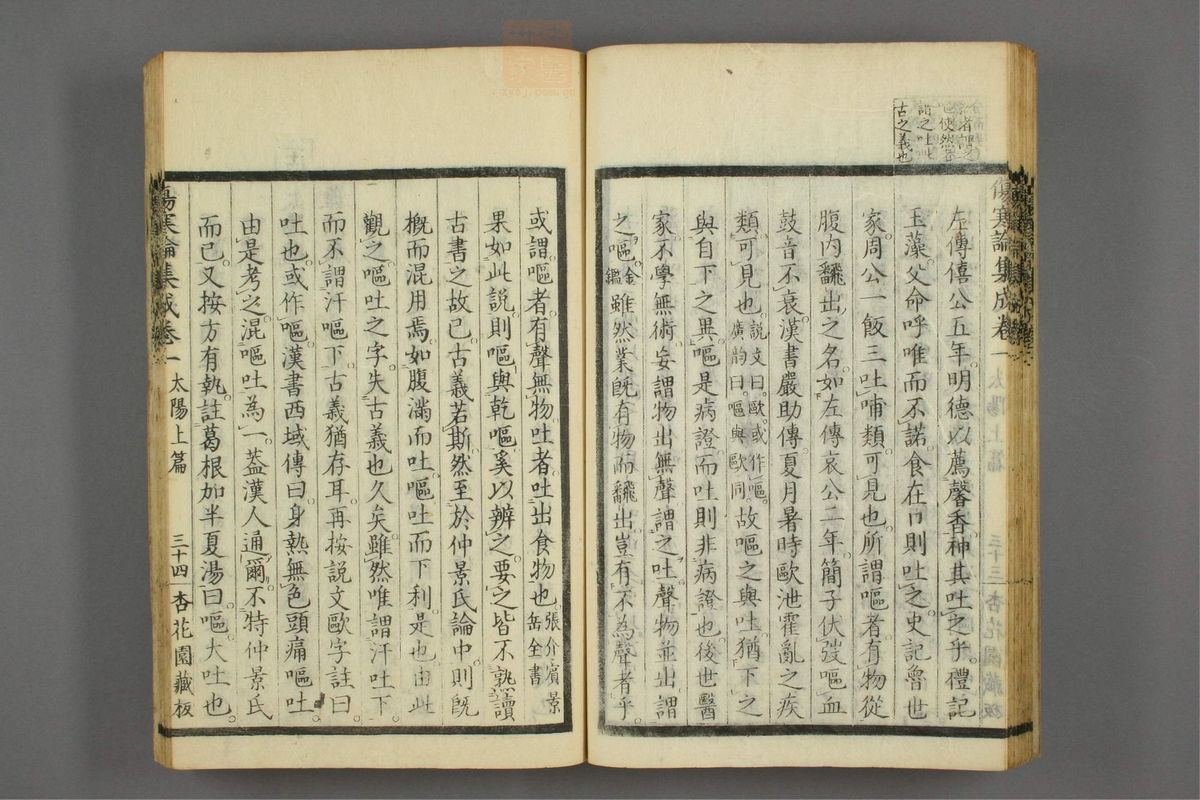 傷寒論集成卷一
謂之吐此
古之義也
左傳僖公五年明德以薦馨香神其吐之乎禮記
玉藻父命呼唯而不諾食在口則吐之史記魯世
家周公一飯三吐哺類可見也所謂嘔者有物從
腹内飜出之名如左傳哀公二年簡子伏弢嘔血
鼓音不衰漢書嚴助傳夏月暑時歐泄霍亂之疾
類可見也說文曰歐或作嘔廣韵曰嘔與歐同故嘔之與吐猶下之
與自下之異嘔是病證而吐則非病證也後世醫
家不學無術妄謂物出無聲謂之吐聲物並出謂
之嘔金鑑雖然業既有物而飜出豈有不為聲者乎
或謂嘔者有聲無物吐者吐出食物也張介賓景岳全書
果如此說則嘔與乾嘔奚以辨之要之皆不熟讀
古書之故已古義若斯然至於仲景氏論中則既
概而混用焉如腹滿而吐嘔吐而下利是也由此
觀之嘔吐之字失古義也久矣雖然唯謂汗吐下
而不謂汗嘔下古義猶存耳再按說文歐字註曰
吐也或作嘔漢書西域傳曰身熱無色頭痛嘔吐
由是考之混嘔吐為一蓋漢人通爾不特仲景氏
而已又按方有執註葛根加半夏湯曰嘔大吐也
傷寒論集成卷一 太陽上篇 三十四 杏花園藏板